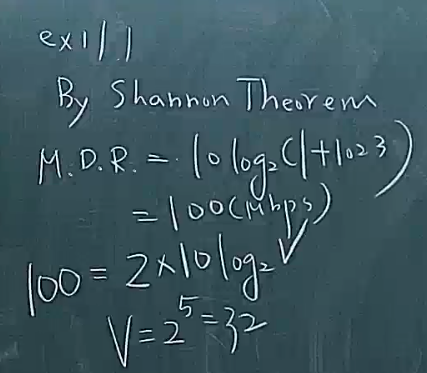 ex11.1
By Shannon Theorem
M.D.R. = 10 log₂(1+1023)
= 100(Mbps)
100 = 2×10 log₂ V
V = 2⁵ = 32